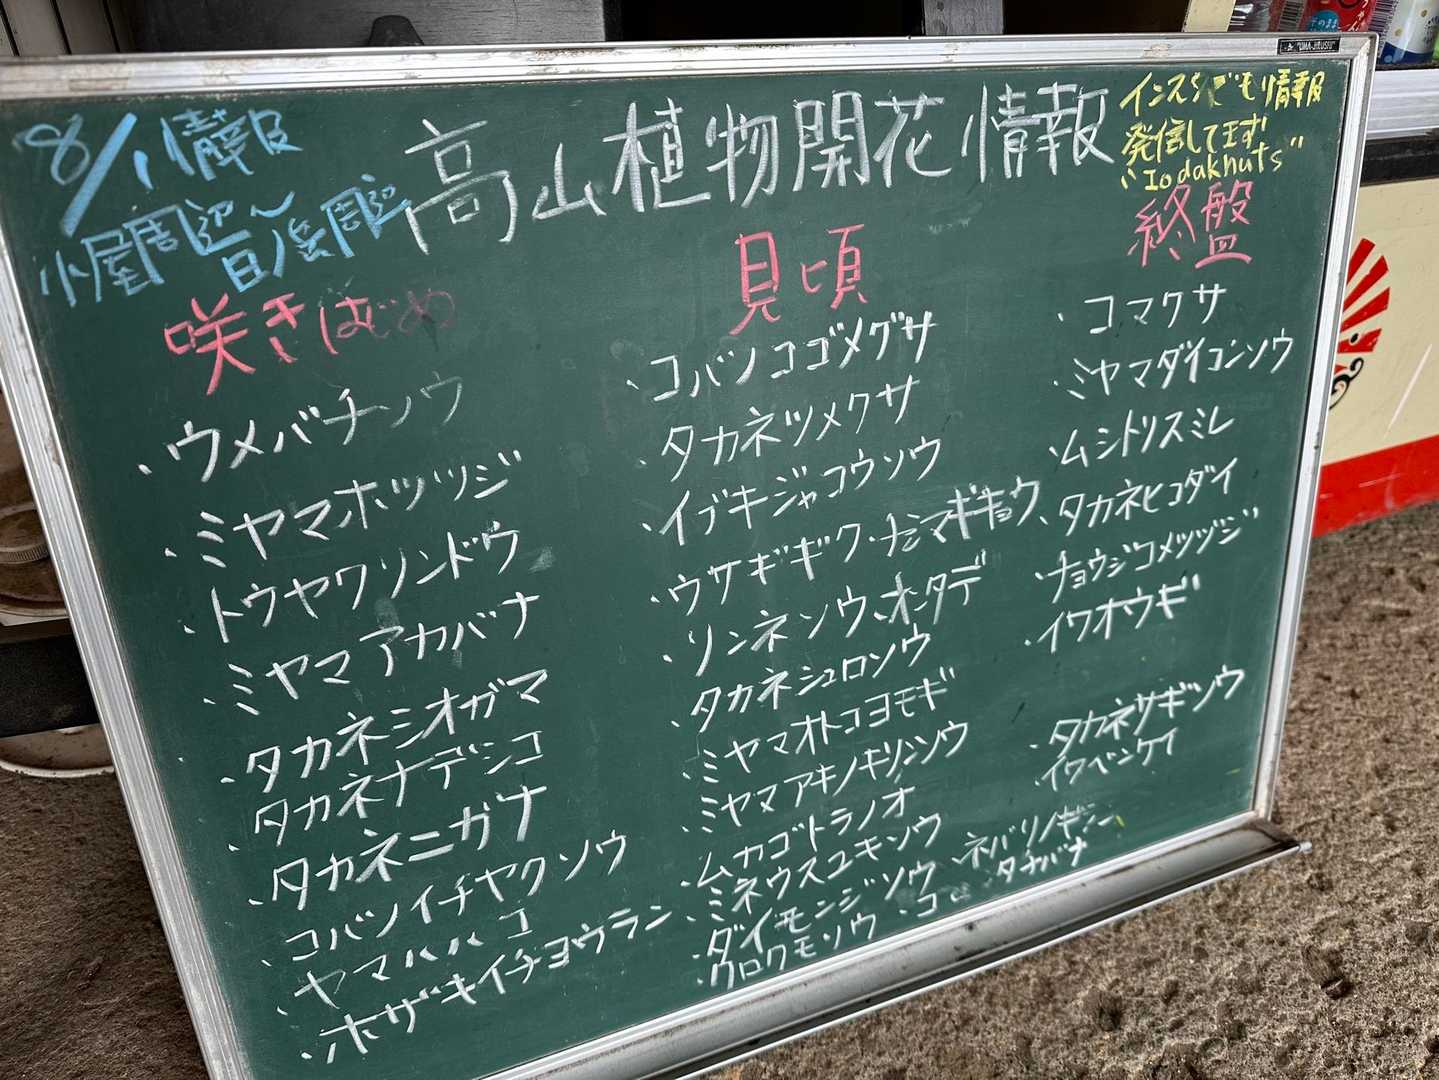 8/1 情報
小屋周辺〜
日ノ岳周辺
高山植物開花情報
インスタでも情報
発信してます
"Iodakhuts"
咲きはじめ
・ウメバチソウ
・ミヤマホツツジ
・トウヤクリンドウ
・ミヤマアカバナ
・タカネシオガマ
・タカネナデシコ
・タカネニガナ
・コバノイチヤクソウ
・ヤマハハコ
・ホザキイチヨウラン
見頃
・コバノコゴメグサ
・タカネツメクサ
・イブキジャコウソウ
・ウサギギク・チシマギキョウ
・リンネソウ、オンタデ
・タカネシュロソウ
・ミヤマオトコヨモギ
・ミヤマアキノキリンソウ
・ムカゴトラノオ
・ミネウスユキソウ
・ダイモンジソウ
・クロクモソウ
・ネバリノギラン
・コ
タチバナ
終盤
・コマクサ
・ミヤマダイコンソウ
・ムシトリスミレ
・タカネヒゴダイ
・チョウジコメツツジ
・イワオウギ
・タカネサギソウ
・イワベンケイ
"UMA-JIRUSHI"